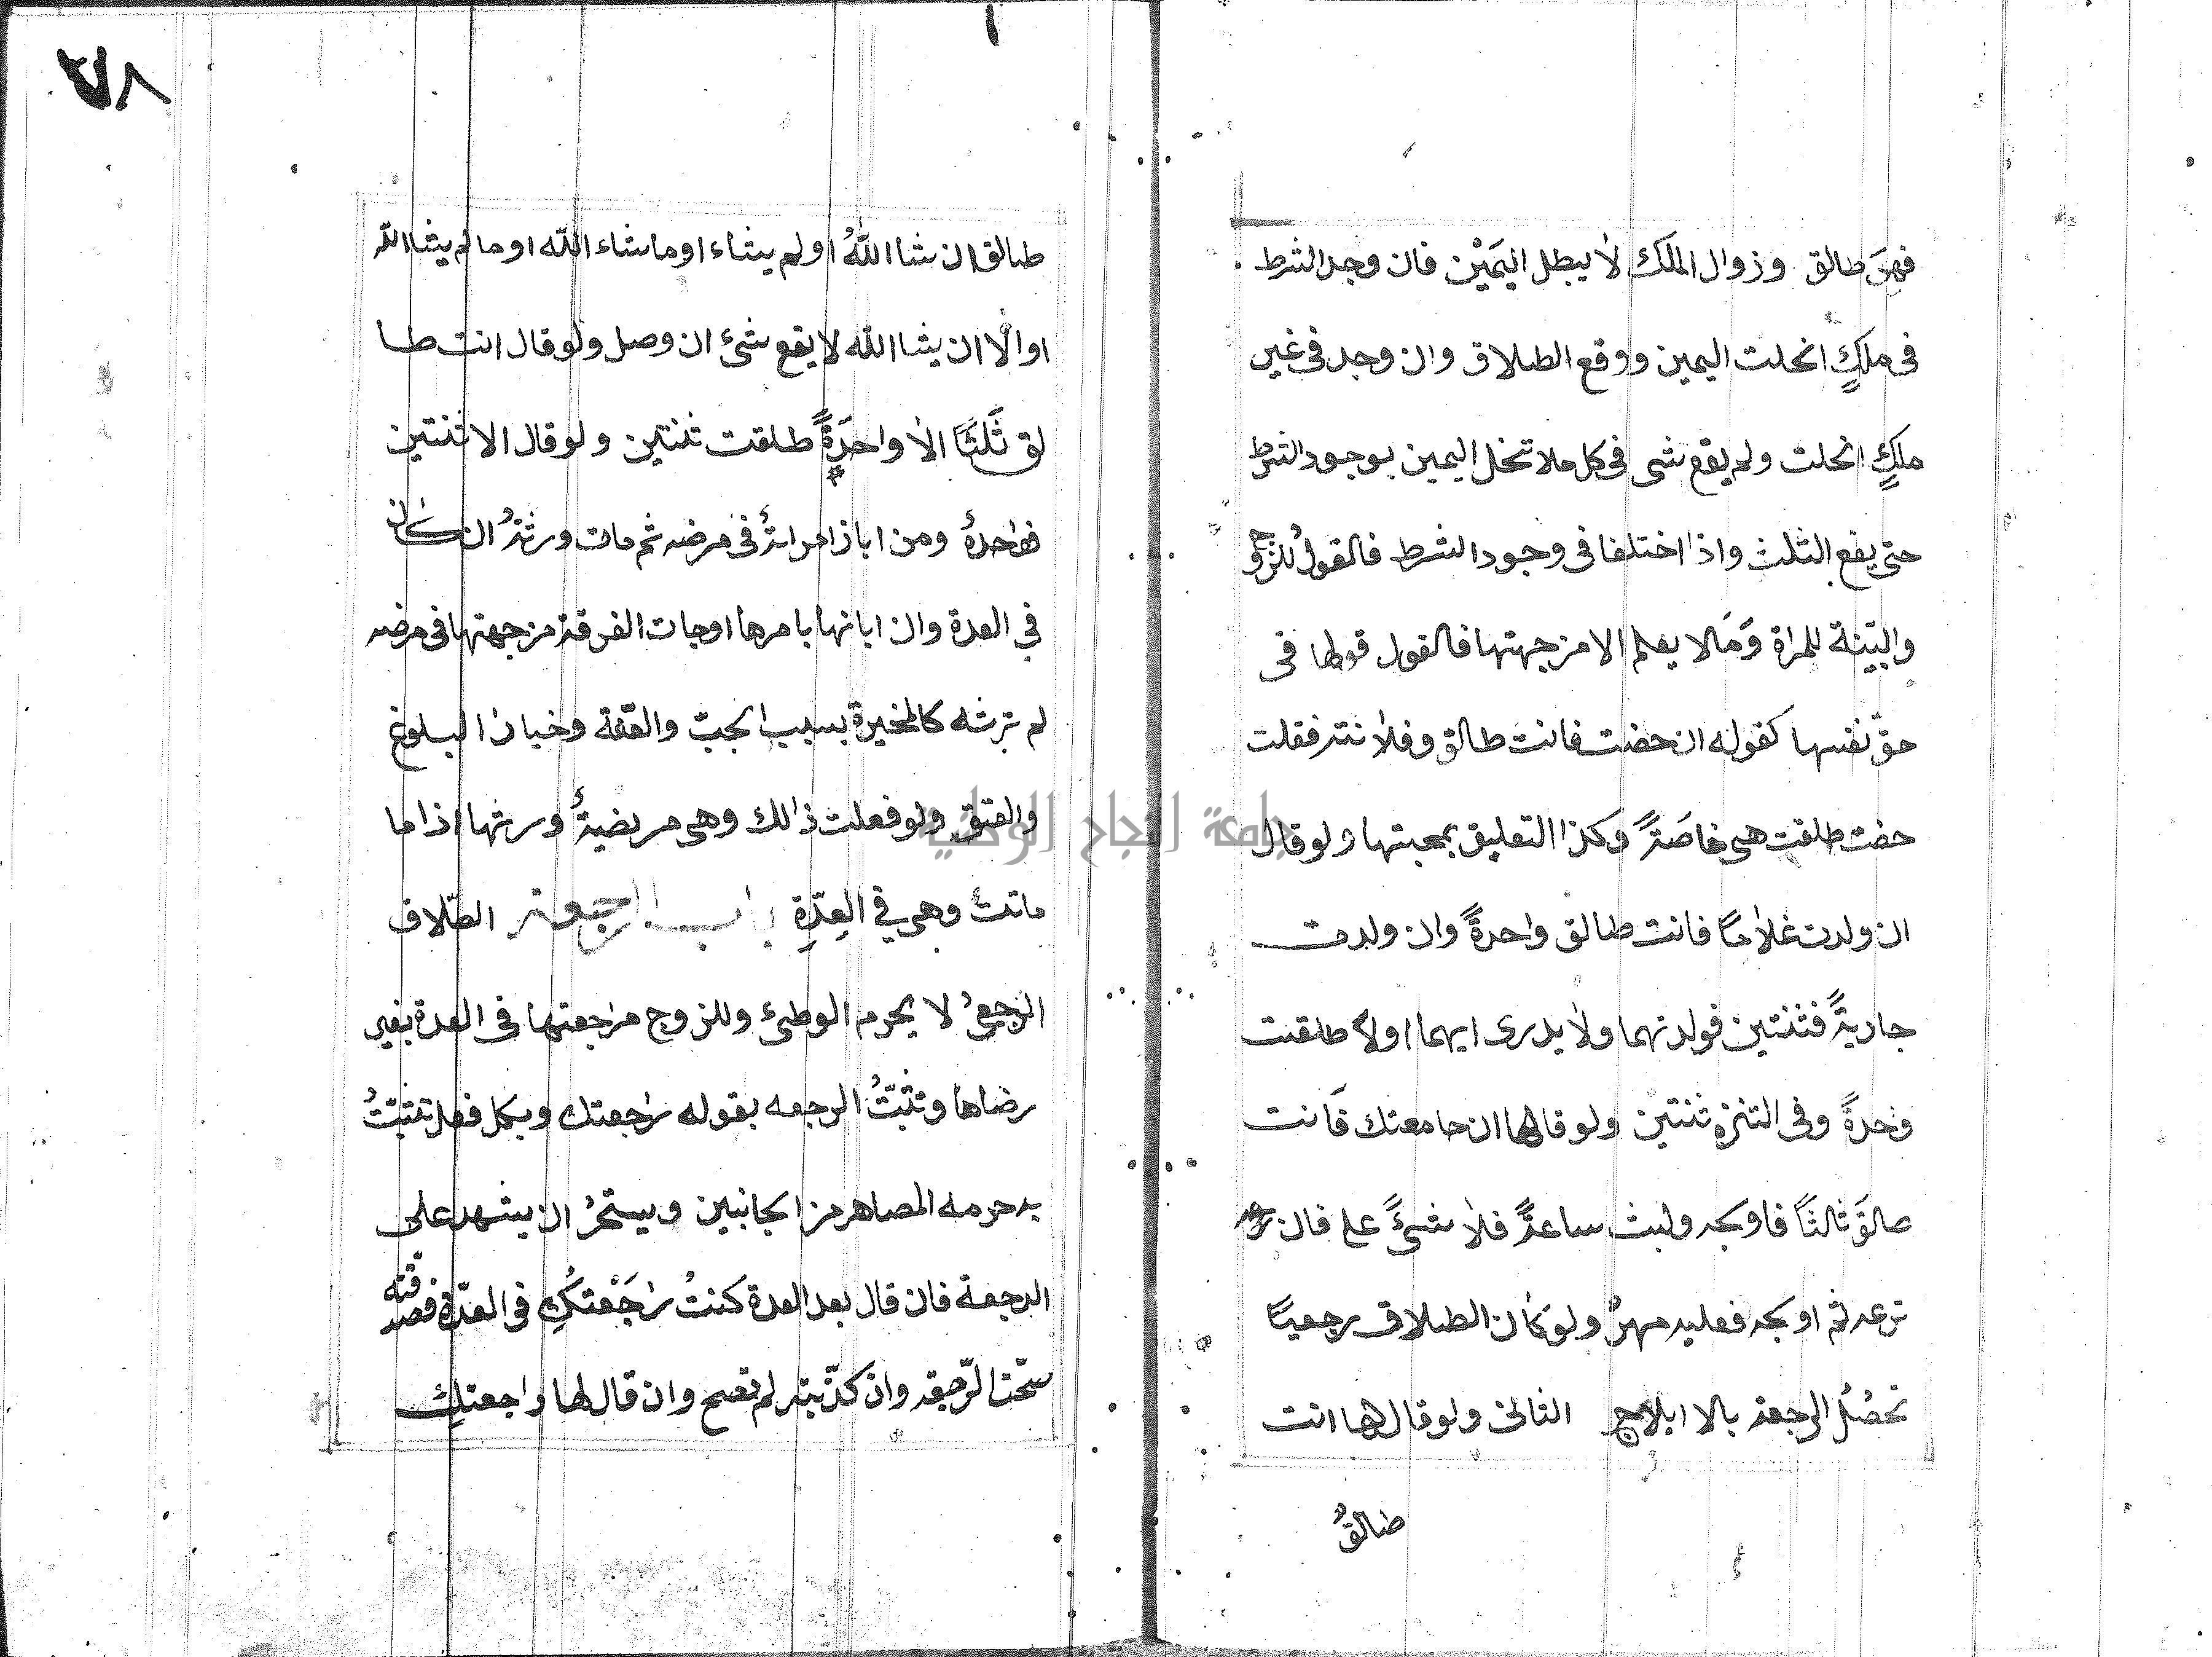 فهىَ طالق وزوال الملك لا يبطل اليَمَيْن فان وجد الشرط
فى ملكٍ انحلت اليمين ووقع الطلاق وان وجد فى غير
ملكٍ انحلت ولم يقع شى فى كل ملا تنحل اليمين بوجود الشرط
حتى يقع الثلث واذا اختلفا فى وجود الشرط فالقولُ للزوج
والبيّنة للمراة وَمَالا يعلم الا من جهتها فالقول قولها فى
حقّ نفسها كقوله ان حضت فانت طالق وفلانته فقلت
حضت طلقت هى خاصَةً وكذا التعليق بمحبتها ولو قال
ان ولدت غلامًا فانت طالق واحدةً وان ولدت
جاريةً فثنتين فولدتهما ولا يدرى ايهما اولا طلقت
وٰحدةً وفى التنزه ثنتين ولو قال لها ان جامعتك فَانت
طالقَ ثالثًا فاولجه ولبث ساعةً فلا شىءً عل فان
نزعه ثم اولجه فعليه مهرٌ ولو كان الطلاق رجعيًا
تحصُلُ الرجعة بالا ايلاج الثانى ولو قال لها انت
طالقٌ
٧٨
طالق ان شا اللّهُ او لم يشاء او ما شاء اللّه او ما لم يشا اللّه
او الا ان يشا اللّه لا يقع شئ ان وصل ولو قال انت طا
لق ثَلٰثًا الا واحدَةً طلقت ثنتين ولو قال الا ثنتين
فواحدةٌ ومن ابان امراتهُ فى مرضه ثم مات ورثتهُ ان كان
في العدة وان ابانها بامرها او جات الفرقة من جهتها فى مرضه
لم ترثه كالمخيرة بسبب الجبّ والعّنة وخيار البلوغ
والعتق ولو فعلت ذالك وهى مريضيةٌ ورثها اذا ما
ماتت وهى في العِدّةِ باب الرجعة الطّلاق
الرجعىُ لا يحرم الوطئ وللزوج مراجعتها فى العدة بغير
رضاها وتثبّتُ الرجعه بقوله راجعتك وبكل فعل تثبّتُ
به حرمه المصاهر من الجانبين ويستحبُ ان يشهد على
الرجعة فان قال بعد العدة كنتُ رٰاجَعْتُكِ فى العدّة فصدقته
صحّت الرّجعة وان كذّبته لم تصح وان قال لها راجعتكِ
جامعة النجاح الوطنية